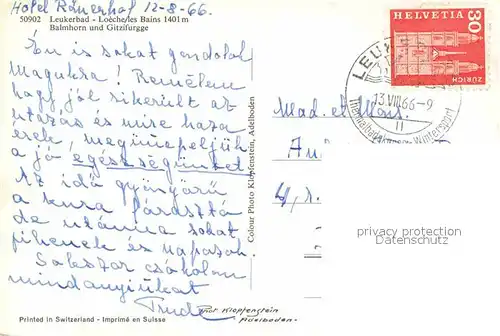 Hotel Ränerhof 12-8-66.
50902 Leukerbad - Loèche/les Bains 1401 m
Balmhorn und Gitzifurgge
Én is sokat gondolok
Magukra! Remélem
hogy jól sikerült az
utazás és mire haza
érek, megünnepeljük
a jó egészségünket
Az idő gyönyörű
a kura fárasztó
de utánna sokat
pihenek és napozok.
Sokszor csókolom
mindanyiukat
Trude
Printed in Switzerland - Imprimé en Suisse
Colour Photo Klopfenstein, Adelboden
Phot Klopfenstein
Adelboden
HELVETIA
30
ZÜRICH
LEUK
13.VIII.66-9
Thermalbadekuren-Wintersport
Mad. et Mons.
privacy protection
Datenschutz